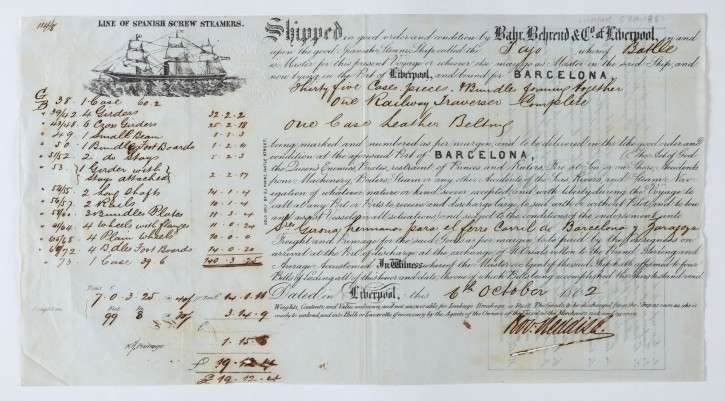 114/8
LINE OF SPANISH SCREW STEAMERS.
Shipped in good order and condition by Bahr, Behrend & Co. of Liverpool, in and
upon the good Spanish Steam Ship called the Tajo whereof Batlle
is Master for this present Voyage or whoever else may go as Master in the said Ship, and
now lying in the Port of Liverpool, and bound for BARCELONA,
Thirty five Cases, pieces, & Bundle forming together
One Railway Traverser Complete
One Case Leather Belting
G/B 38. 1 Case 60.2
" 39/42 4 Girders 32.2.2
" 43/48 6 Cross Girders 25.2.18
" 49 1 Small Beam 1.1.3
" 50 1 Bundle Foot Boards 1.2.1
" 51/52 2 do Stays 5.2.3
" 53. 1 Girder with
Stays attached 2.2.17
" 54/55 2 Long Shafts 14.1.4
" 56/57 2 Rails 10.1.2
3 Bundle Plates 11.3.4
" 61/64 4 Wheels with flanges 11.0.24
" 65/68 4 Plain Wheels 10.0.0
" 69/72 4 Bdles Foot Boards 14.0.20
" 73 1 Case 39.6
140.3.25
being marked and numbered as per margin, and to be delivered in the like good order and
condition at the aforesaid Port of BARCELONA, (The Act of God
the Queen's Enemies, Pirates, restraint of Princes and Rulers, Fire at Sea or on Shore, Accidents
from Machinery, Boilers, Steam or any other Accidents of the Seas, Rivers and Steam Navi-
gation of whatever nature or kind soever excepted, and with liberty during the Voyage to
call at any Port or Ports to receive and discharge Cargo, to sail with or without Pilots, and to tow
and assist Vessels in all situations) and subject to the conditions of the endorsement unto
Sres Girona hermanos para el ferro Carril de Barcelona y Zaragoza
Freight and Primage for the said Goods as per margin, to be paid by the assignees on
arrival at the Port of discharge at the exchange of
Average Accustomed In Witness whereof the Master
Bills of Lading all of this tenor and date, the one of which Bills being accomplished the others to stand void.
Dated in Liverpool, this 6th October 1862
Weights, Contents, and Value unknown, and not answerable for Leakage, Breakage or Rust.
7.0.3.25
14.1.11
99 8
3.14.9
£
1.15.8
£ 19.12.4
£ 19.12.4